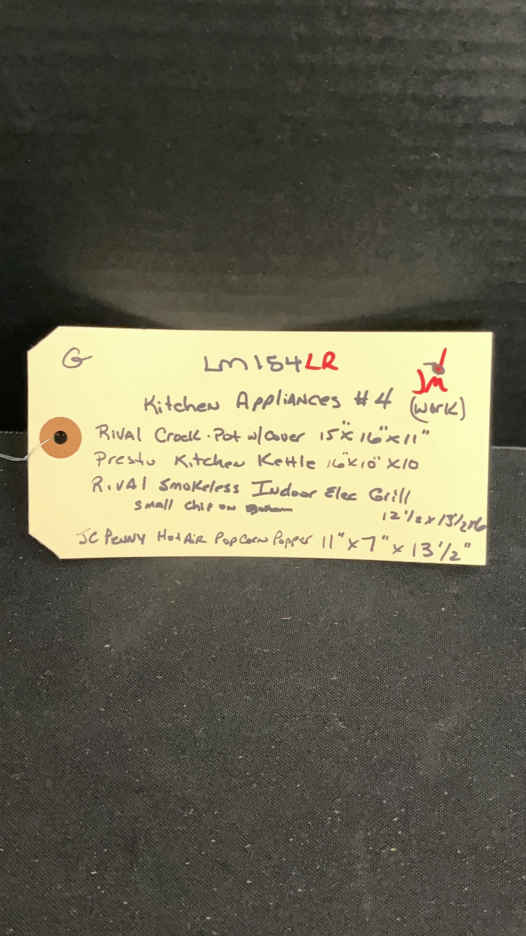 G LM154LR
JM
Kitchen Appliances #4 (work)
Rival Crock-Pot w/cover 15" x 16" x 11"
Presto Kitchen Kettle 16" x 10" x 10
Rival Smokeless Indoor Elec Grill
small chip on
12 1/2 x 13 1/2 x 6
JC Penny Hot Air PopCorn Popper 11" x 7" x 13 1/2"